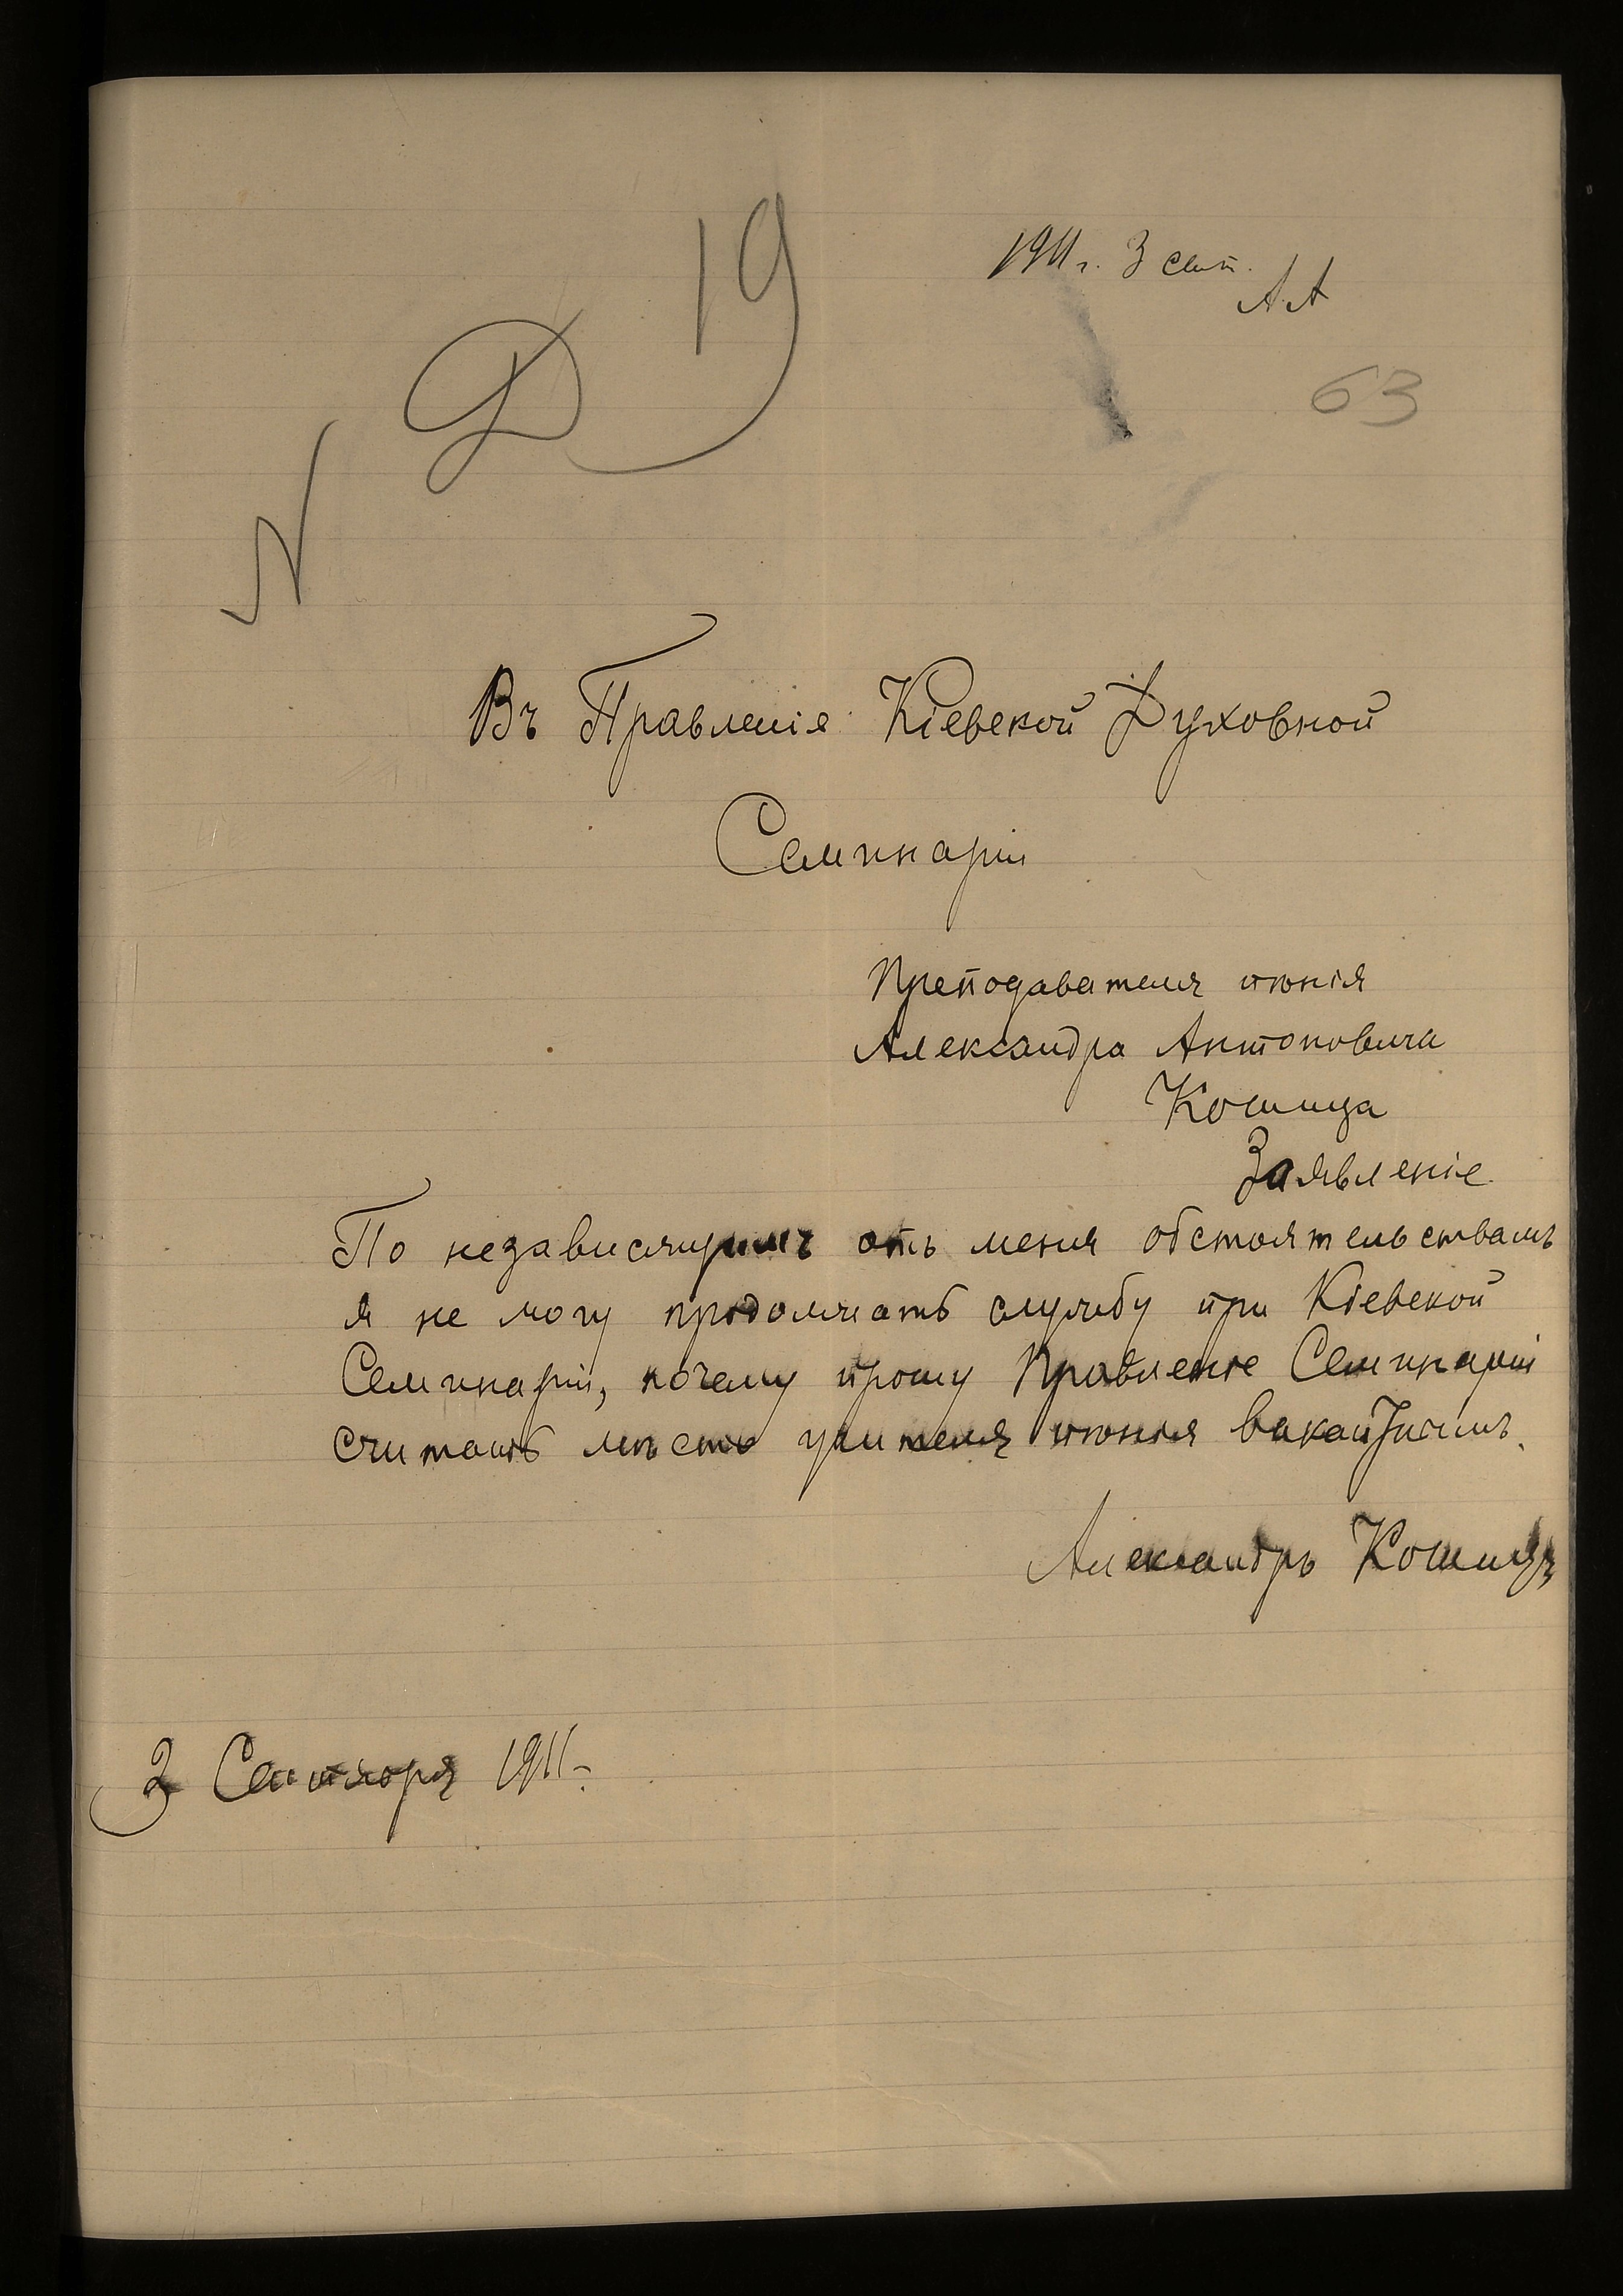 19
1911 г. 3 сент.
А.А
63
Д
N
Въ Правленіе Кіевской Духовной
Семинаріи
Преподавателя пѣнія
Александра Антоновича
Кошица
Заявленіе
По независящимъ отъ меня обстоятельствамъ
я не могу продолжать службу при Кіевской
Семинаріи, почему прошу Правленіе Семинаріи
считать мѣсто учителя пѣнія вакантнымъ.
Александръ Кошицъ
3 Сентября 1911 г.